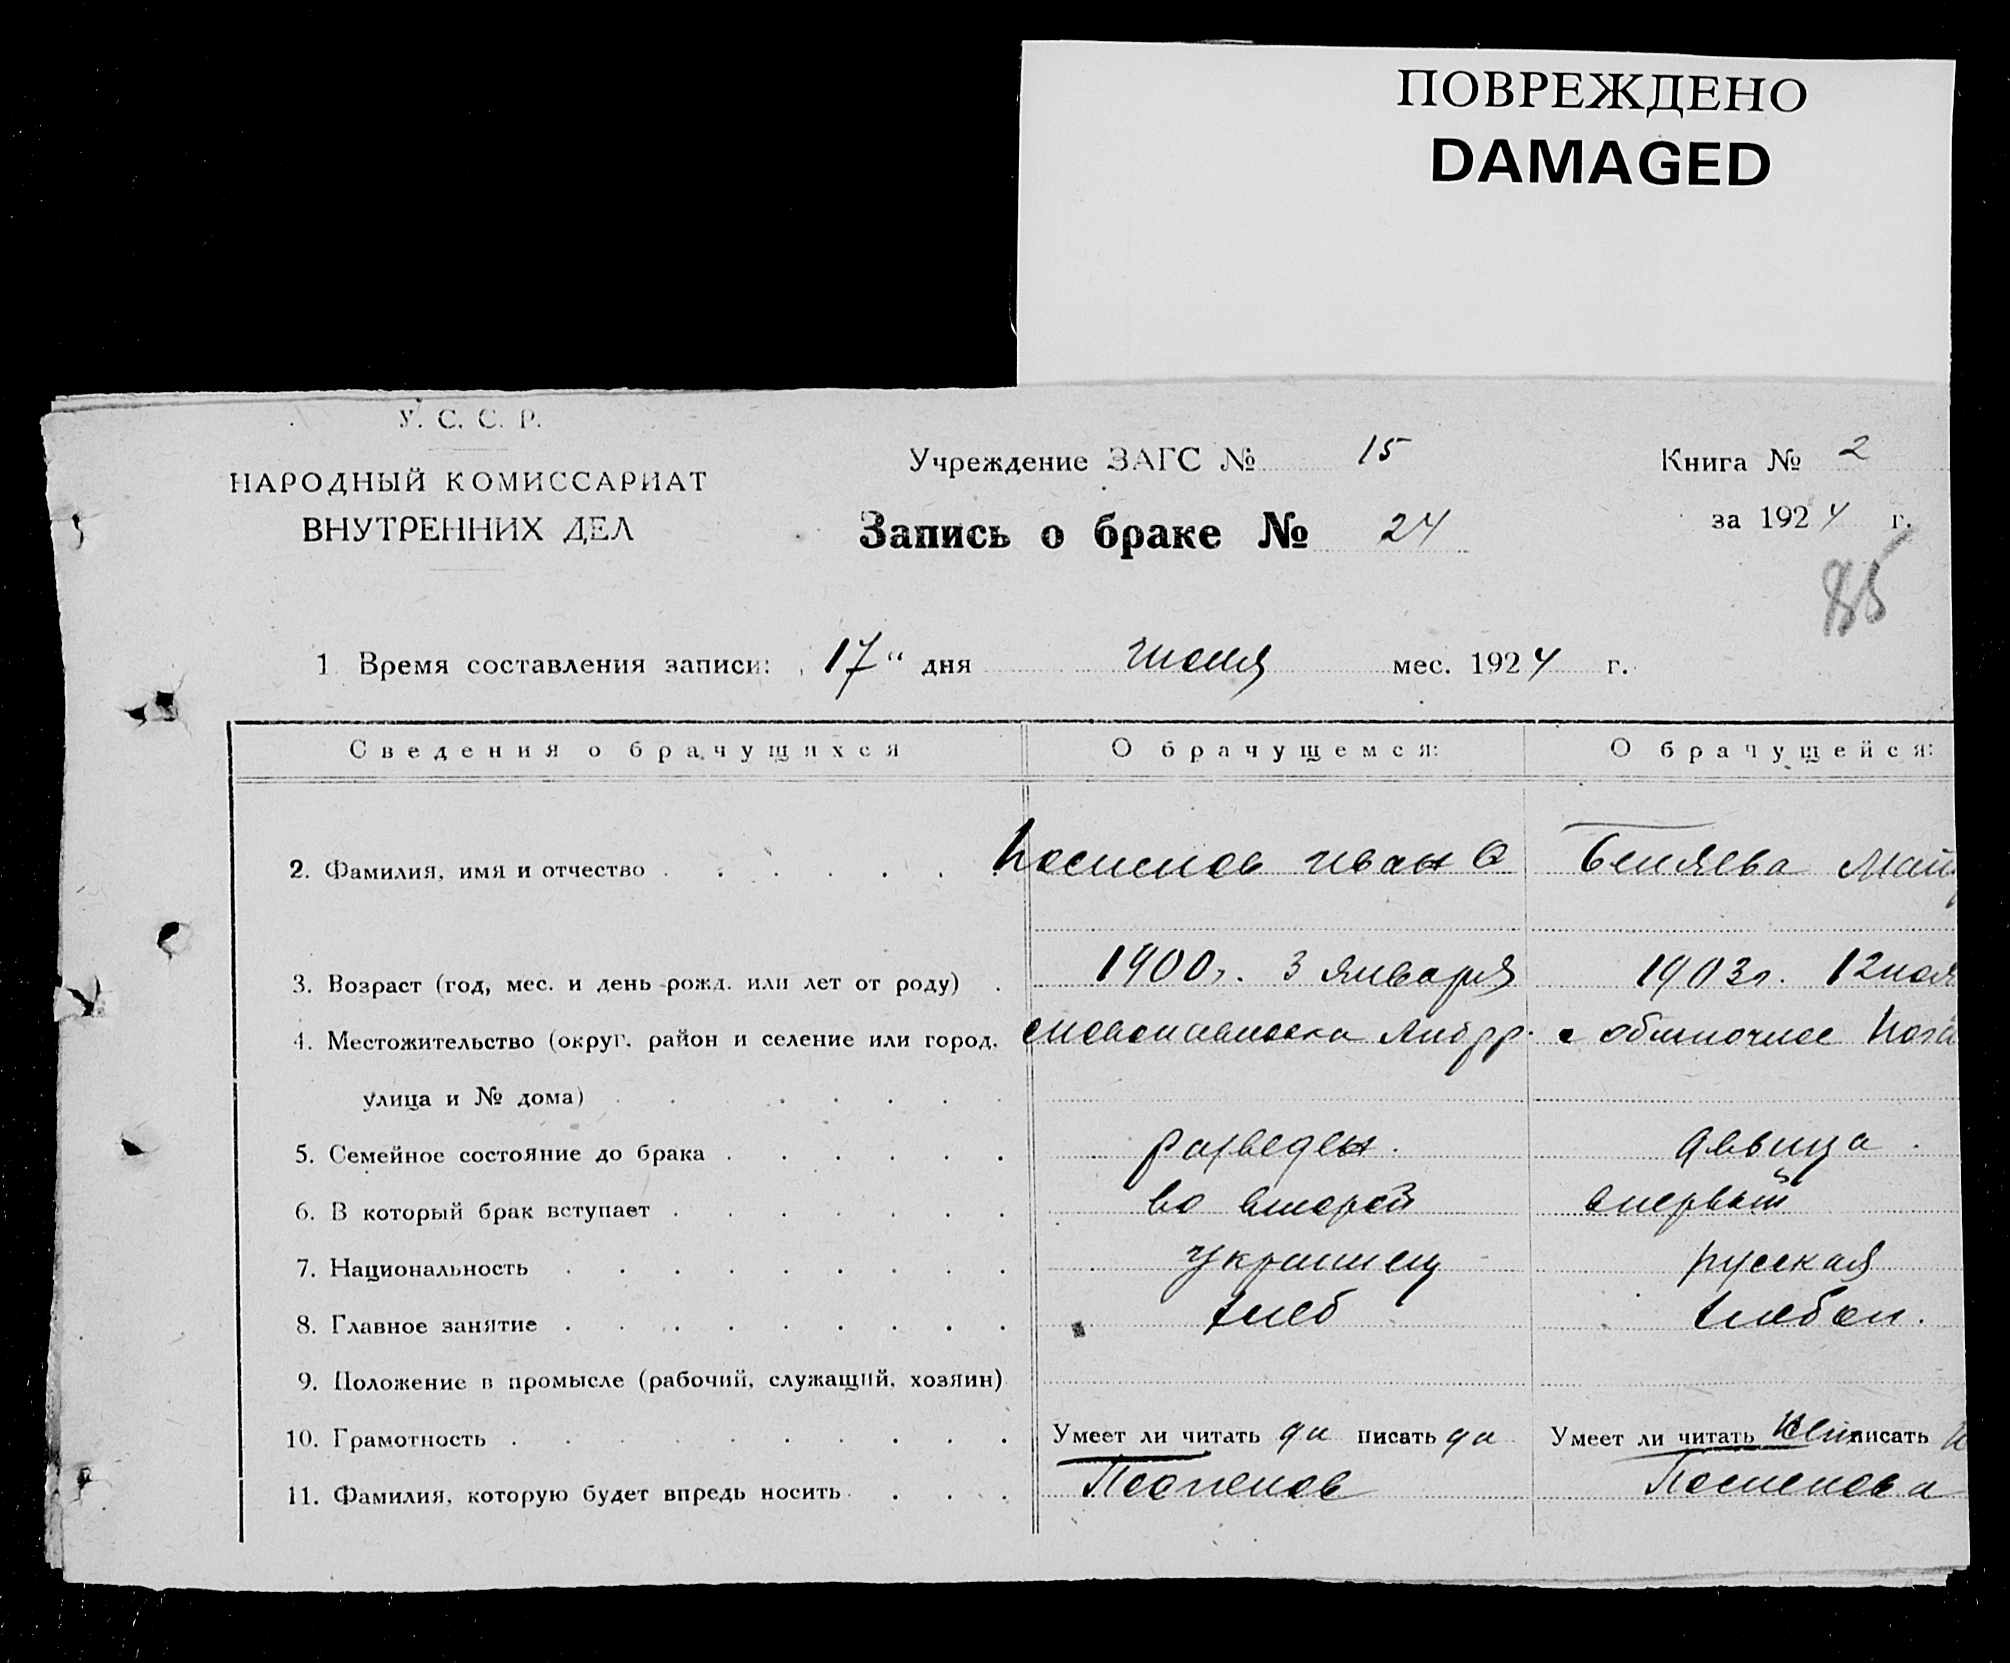 ПОВРЕЖДЕНО
DAMAGED
У. С. С. Р.
НАРОДНЫЙ КОМИССАРИАТ
ВНУТРЕННИХ ДЕЛ
Учреждение ЗАГС № 15
Книга № 2
Запись о браке № 24
за 1924 г.
85
1 Время составления записи: 17“ дня июля мес. 1924 г.
Сведения о брачущихся О брачущемся: О брачущейся:
2. Фамилия, имя и отчество Иван Беляева
3. Возраст (год, мес. и день рожд. или лет от роду) 1900г. 3 января 1903г. 12
4. Местожительство (округ, район и селение или город, Андрр. с облиточное
улица и № дома)
5. Семейное состояние до брака разведен. девица.
6. В который брак вступает во второй впервый
7. Национальность украинец русская
8. Главное занятие хлеб хлебоп.
9. Положение в промысле (рабочий, служащий, хозяин)
10. Грамотность Умеет ли читать да писать да Умеет ли читать нет писать
11. Фамилия, которую будет впредь носить Поспелов Поспелова